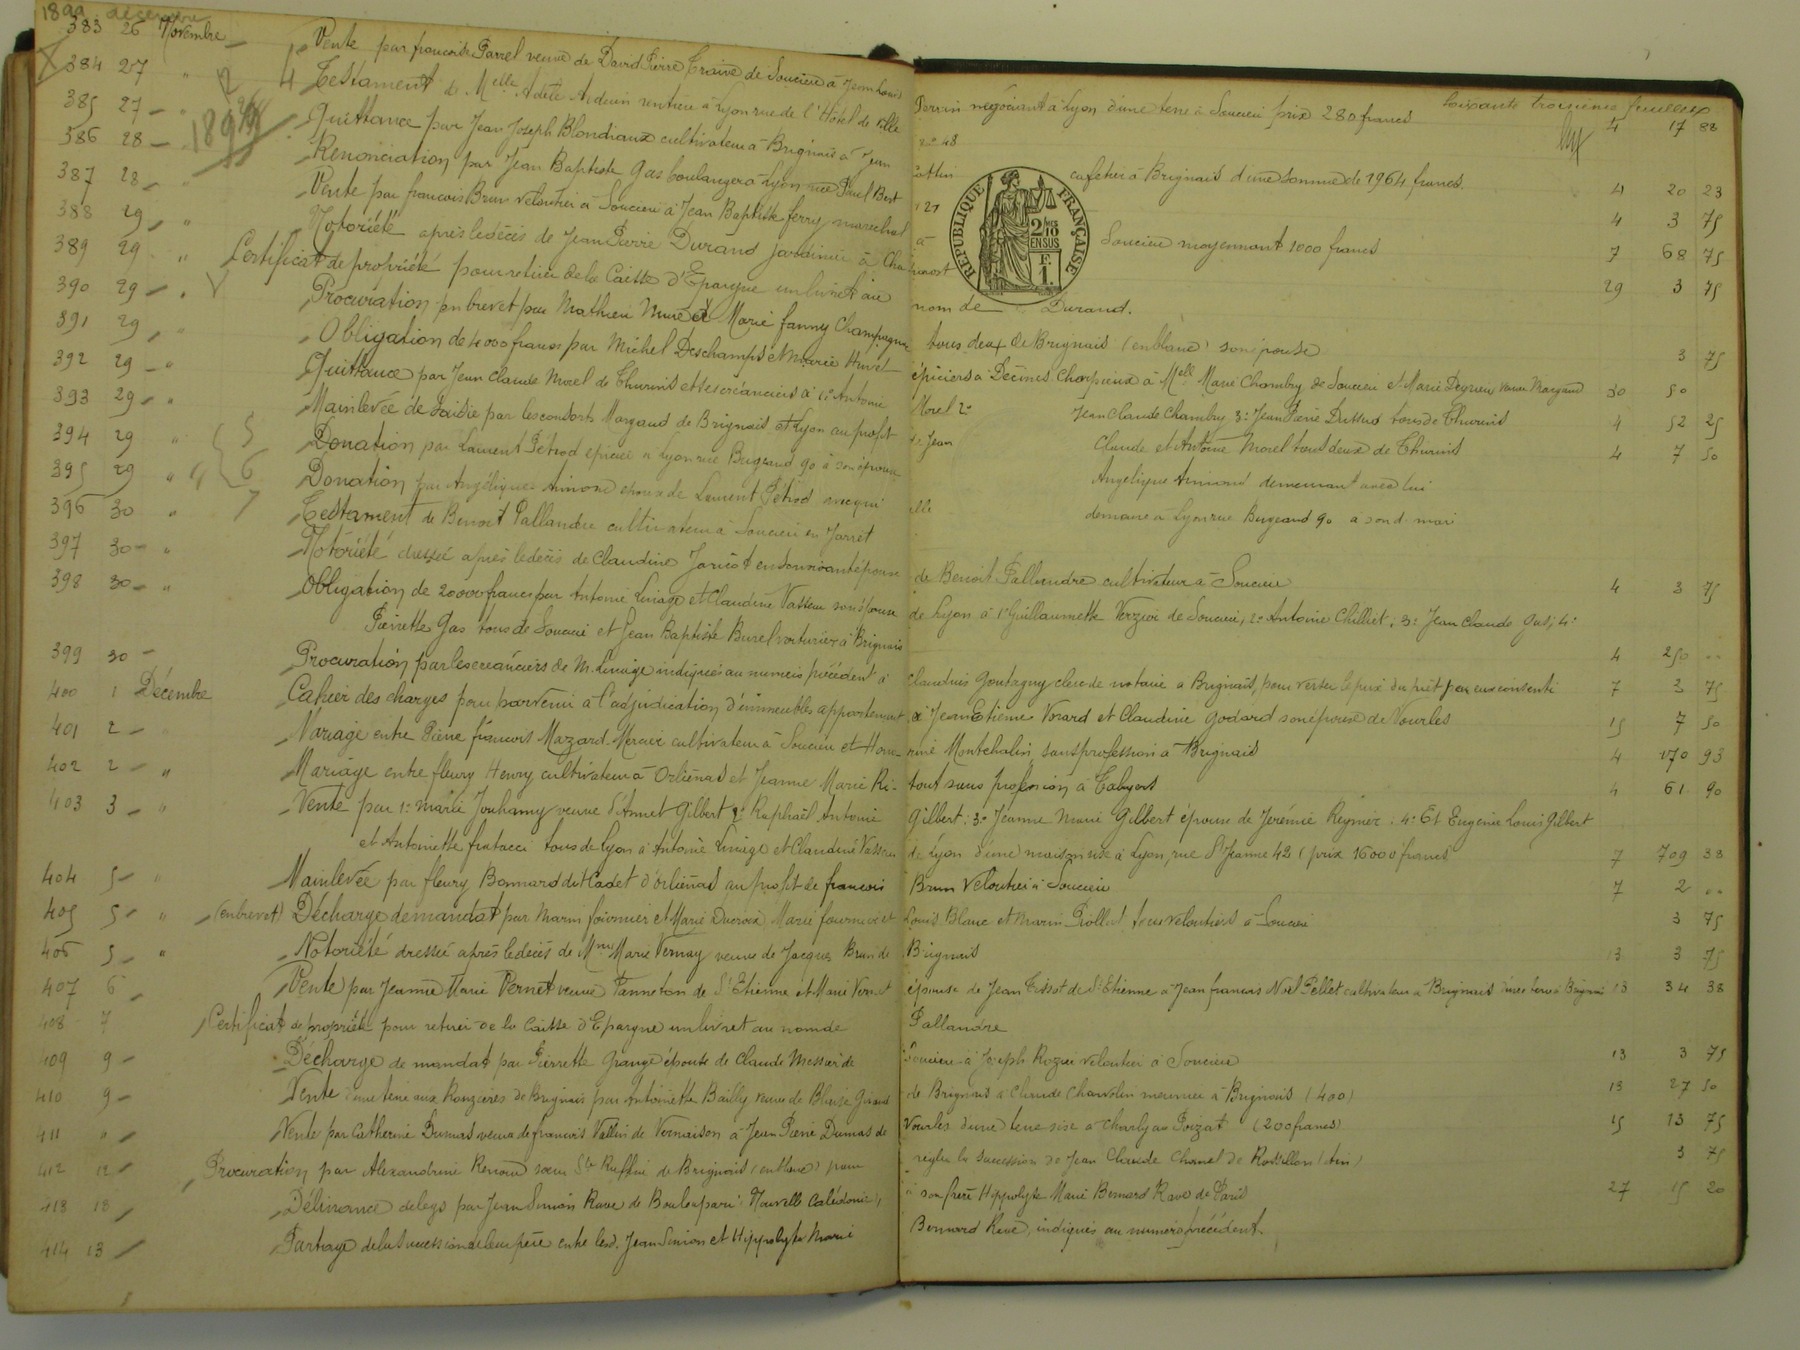 1899 décembre
soixante troisième feuillet
383 26 Novembre Vente par françoise Parrel veuve de David Pierre Craine de Soucieu à Jean Louis Perrin négociant à Lyon d'une terre à Soucieu prix 280 francs 4 17 88
384 27 " Testament de Melle Adèle Arduin rentière à Lyon rue de l'Hôtel de Ville n° 48
385 27 " Quittance par Jean Joseph Blondiaux cultivateur à Brignais à Jean cafetier à Brignais d'une somme de 1964 francs. 4 20 23
386 28 " Renonciation par Jean Baptiste Gas boulanger à Lyon rue Paul Bert 121 4 3 75
387 28 " Vente par françois Brun veloutier à Soucieu à Jean Baptiste ferry marechal à Soucieu moyennant 1000 francs 7 68 75
388 29 " Notoriété après le décès de Jean Pierre Durand jardinier à Chaponost 29 3 75
389 29 " Certificat de propriété pour retirer de la Caisse d'Epargne un livret au nom de Durand.
390 29 " Procuration en brevet par Mathieu Mure à Marie fanny Champagne tous deux de Brignais (en blanc) son épouse 3 75
391 29 " Obligation de 4000 francs par Michel Deschamps et Marie Huvet épiciers à Décines Charpieux à Melle Marie Chambry de Soucieu et Marie veuve Margaud 30 50
392 29 " Quittance par Jean Claude Morel de Thurins et ses créanciers à 1° Antoine Morel 2° Jean Claude Chambry 3° Jean Pierre tous de Thurins 4 52 25
393 29 " Mainlevée de Saisie par les consorts Margaud de Brignais et Lyon au profit de Jean Claude et Antoine Morel tous deux de Thurins 4 7 50
394 29 " Donation par Laurent Pétrod épicier à Lyon rue Bugeaud 90 à son épouse Angélique demeurant avec lui
395 29 " Donation par Angélique épouse de Laurent Pétrod avec qui elle demeure à Lyon rue Bugeaud 90 à son d. mari
396 30 " Testament de Benoit Pallandre cultivateur à Soucieu en Jarret
397 30 " Notoriété dressée après le décès de Claudine Jaricot en son vivant épouse de Benoit Pallandre cultivateur à Soucieu 4 3 75
398 30 " Obligation de 20000 francs par Antoine Liniage et Claudine Vasseau son épouse de Lyon à 1° Guillaumette Verzier de Soucieu, 2° Antoine Chilliet, 3° Jean Claude Gas; 4°
Pierrette Gas tous de Soucieu et Jean Baptiste Burel voiturier à Brignais 4 250 ..
399 30 Procuration par les créanciers de M. Liniage indiqués au numéro précédent à Claudius Goutagny clerc de notaire à Brignais, pour verser le prix du prêt par eux consenti 7 3 75
400 1 Décembre Cahier des charges pour parvenir à l'adjudication d'immeubles appartenant à Jean Etienne Vorard et Claudine Godard son épouse de Vourles 15 7 50
401 2 " Mariage entre Pierre françois Mazard Mercier cultivateur à Soucieu et Montchalin sans profession à Brignais 4 170 93
402 2 " Mariage entre fleury Henry cultivateur à Orliénas et Jeanne Marie Ri- tout sans profession à Taluyers 4 61 90
403 3 " Vente par 1° Marie Jouhamy veuve d'Annet Gilbert 2° Raphaël Antoine Gilbert: 3° Jeanne Marie Gilbert épouse de Jérémie Reynier. 4° Et Eugenie Louis Gilbert
et Antoinette fratacci tous de Lyon à Antoine Liniage et Claudine Vasseau de Lyon d'une maison sise à Lyon, rue St Jeanne 42 (prix 16000 francs 7 709 38
404 5 " Mainlevée par fleury Bonnard dit Cadet d'Orliénas au profit de francois Brun veloutier à Soucieu 7 2 ..
405 5 " (en brevet) Décharge de mandat par Marin fournier et Marie Ducroix Marie fournier et Louis Blanc et Marin Piollat tous veloutiers à Soucieu 3 75
406 5 " Notoriété dressée après le décès de Mme Marie Vernay veuve de Jacques Brun de Brignais 13 3 75
407 6 Vente par Jeanne Marie Vernet veuve Panneton de St Etienne et Marie Vernet épouse de Jean Tissot de St Etienne à Jean francois Noël Pellet cultivateur à Brignais d'une terre à Brignais 13 34 38
408 7 Certificat de propriété pour retirer de la Caisse d'Epargne un livret au nom de Pallandre
409 9 Décharge de mandat par Pierrette Grange épouse de Claude Messier de Soucieu à Joseph Rozier veloutier à Soucieu 13 3 75
410 9 Vente d'une terre aux Ronzières de Brignais par Antoinette Bailly veuve de Blaise Giraud de Brignais à Claude Charvolin meunier à Brignais (400) 13 27 50
411 " Vente par Catherine Dumas veuve de francois Vallin de Vernaison à Jean Pierre Dumas de Vourles d'une terre sise à Charly au Poizat (200 francs) 15 13 75
412 12 Procuration par Alexandrine Renoud sœur Ste Ruffine de Brignais (en blanc) pour régler la succession de Jean Claude de Rossillon (Ain) 3 75
413 18 Délivrance de legs par Jean Simon Rave de Bouloupari Nouvelle Calédonie, à son frère Hippolyte Marie Bernard Rave de Paris 27 15 20
414 13 Partage de la succession de leur père entre lesd. Jean Simon et Hippolyte Marie Bernard Rave, indiqués au numéro précédent
RÉPUBLIQUE FRANÇAISE
2/10 EN SUS
F. 1.